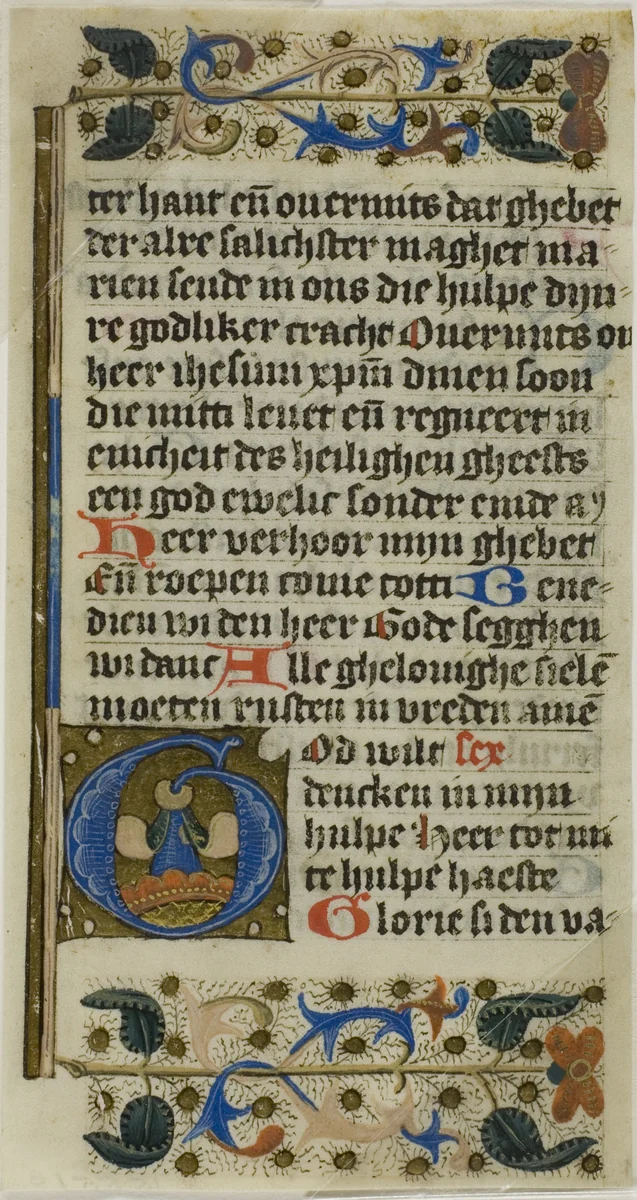 ter hant eñ ouermits dat ghebet
der alre salichster maghet ma-
rien sende in ons die hulpe dijn-
re godliker cracht Ouermits on
heer ihesum xpm̄ dinen soon
die mitti leuet eñ regneert in
enicheit des heilighen gheests
een god ewelic sonder einde
Heer verhoor mijn ghebet
Eñ roepen come totti Bene-
dien wi den heer Gode segghen
wi danc Alle ghelouighe sielē
moeten rusten in vreden amē
God wilt sex
dencken in mijn
hulpe Heer tot mi
te hulpe haeste
Glorie si den va-